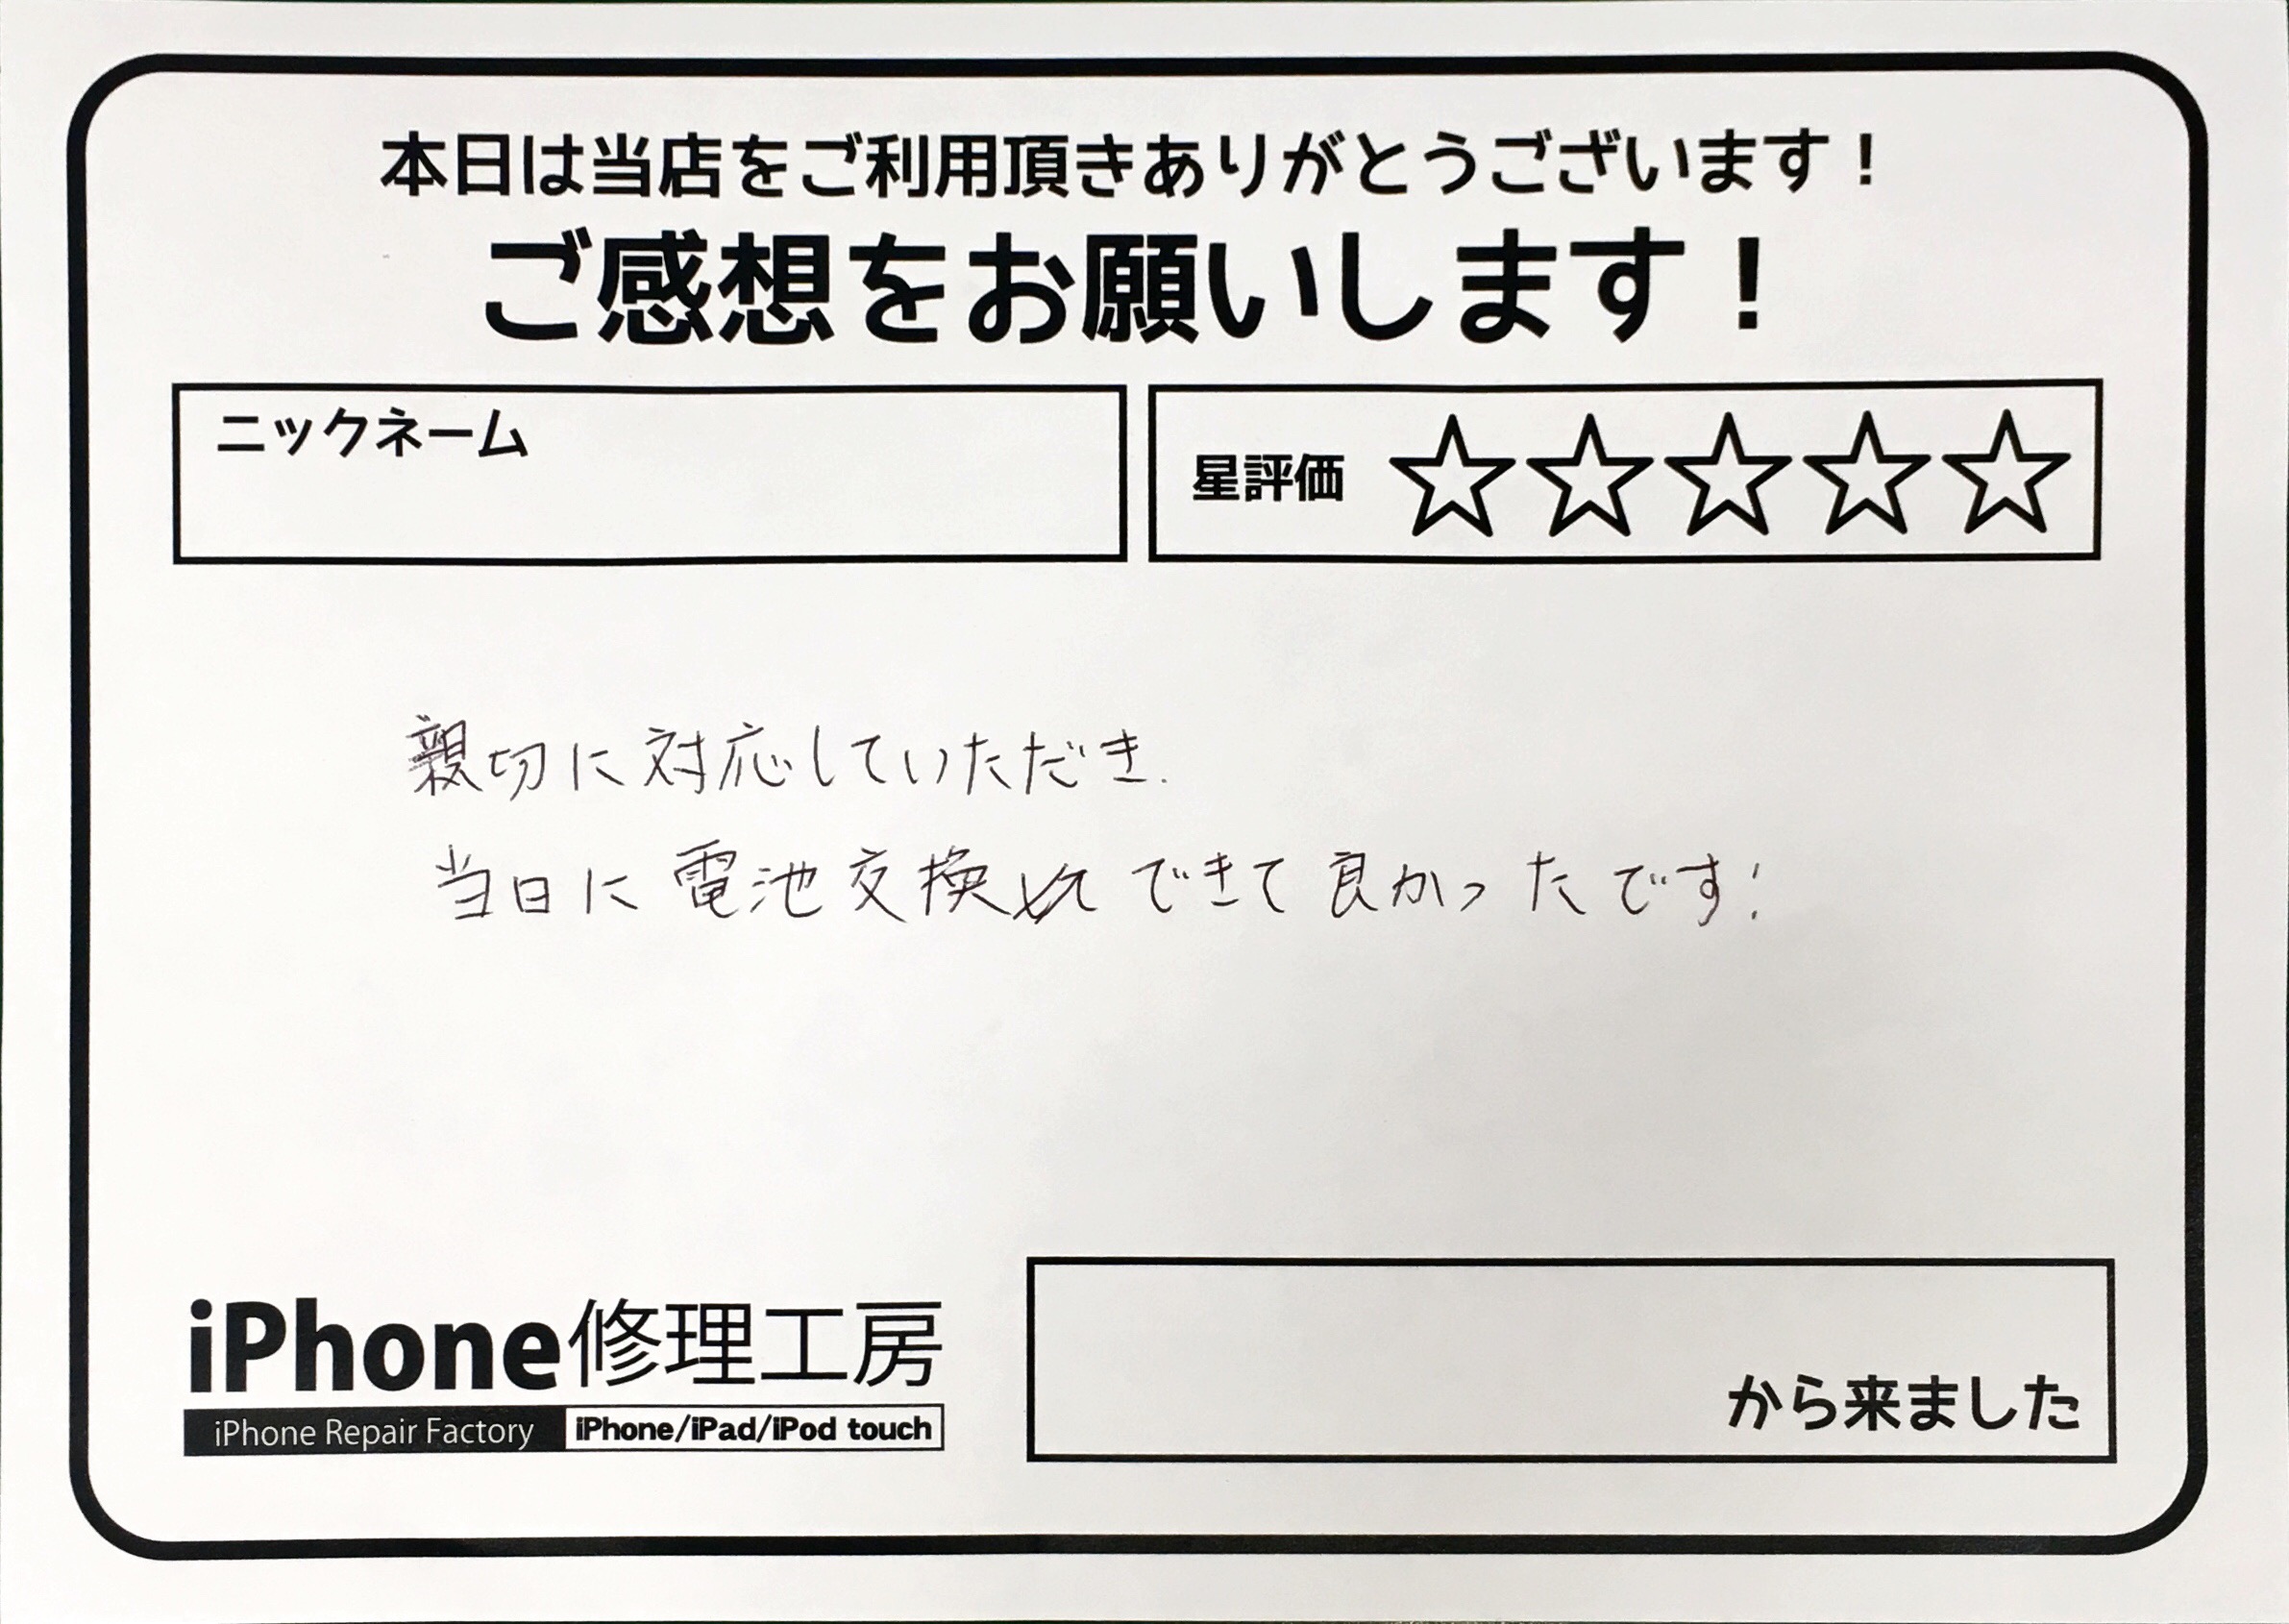 本日は当店をご利用頂きありがとうございます！
ご感想をお願いします！
ニックネーム
星評価 ☆☆☆☆☆
親切に対応していただき、
当日に電池交換できて良かったです!
iPhone修理工房
iPhone Repair Factory iPhone/iPad/iPod touch
から来ました